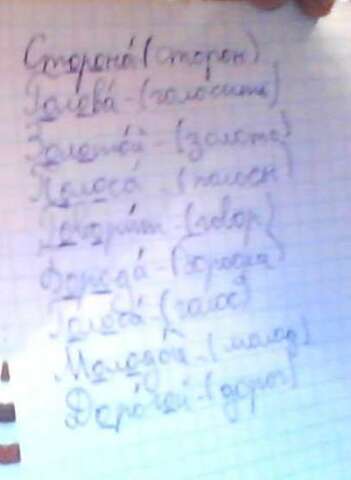 Сторона́ (сторон)
Голова́ - (голосите)
Золото́й - (золото)
Полоса́ - (полосы)
Говори́т - (говор)
Борода́ -
Голова́ - (голос)
Молодо́й - (молод)
Дорого́й - (дорог)